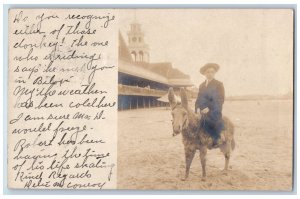 Do you recognize
either of these
donkeys? The one
who is riding
says he met you
in Biloxi.
My! the weather
has been cold here
I am sure Mrs. D.
would freeze.
Robert has been
having the time
of his life skating
Kind Regards
McConroy